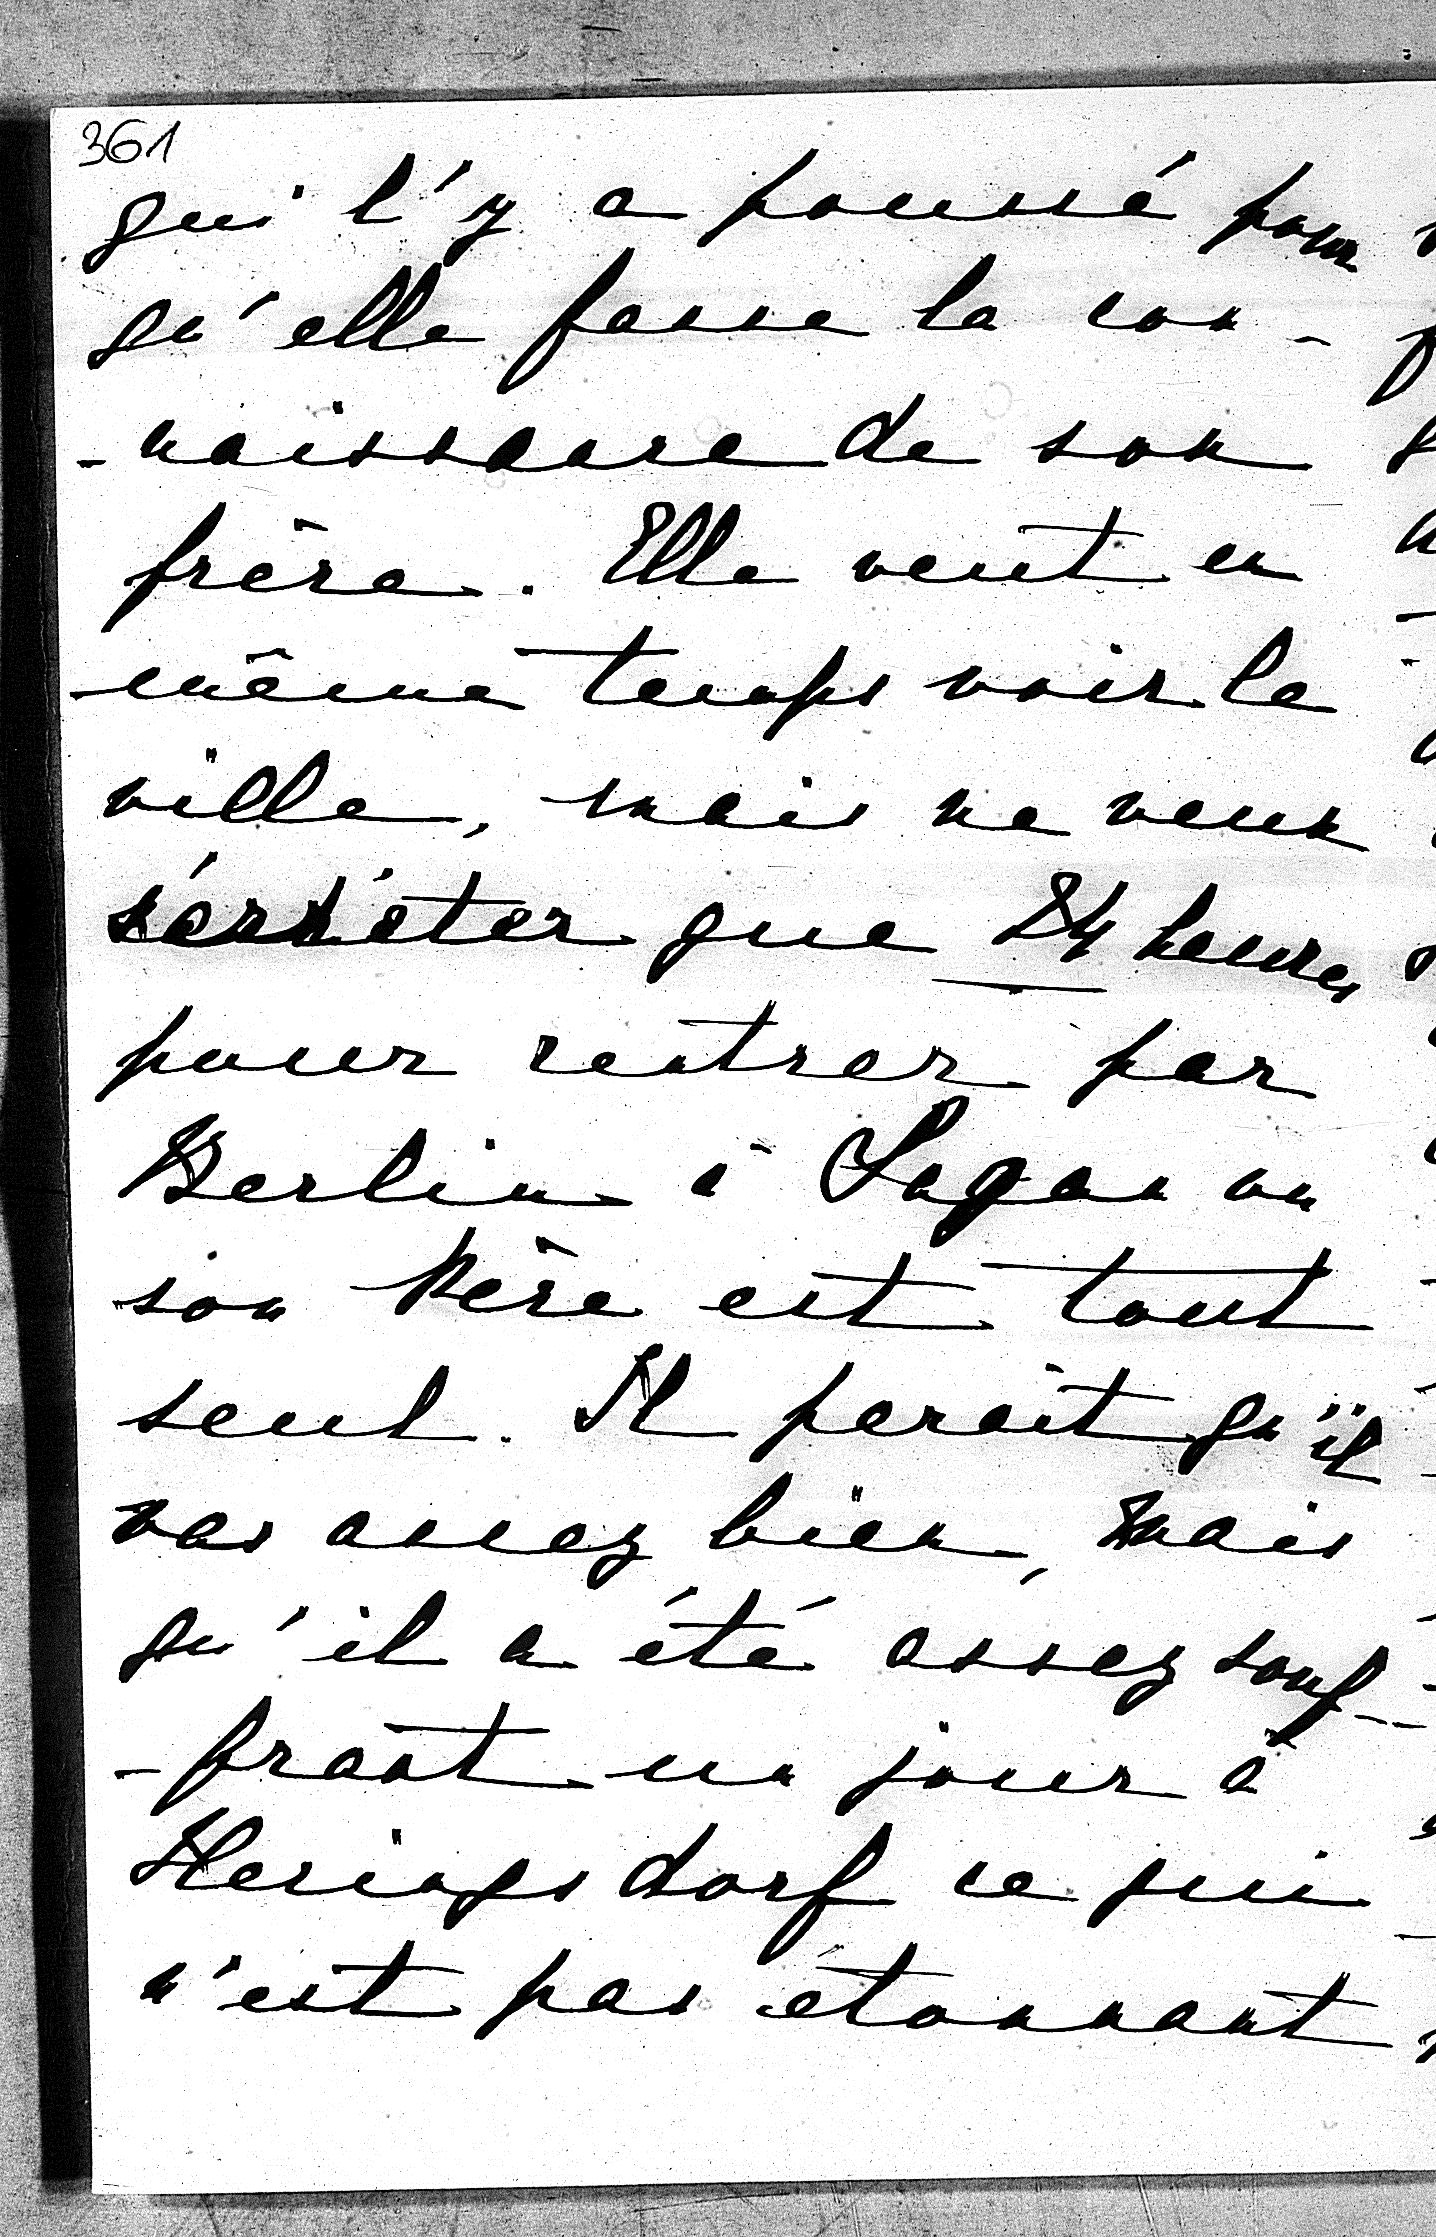 361
qui l'y a poussé pour
qu'elle fasse la con-
-naissance de son
frère. Elle veut en
même temps voir la
ville, mais ne veux
s'arrêter que 24 heures
pour rentrer par
Berlin à Sagan ou
son Père est tout
seul. Il parait qu'il
vas assez bien, mais
qu'il a été assez souf-
-frant un jour à
Heringsdorf ce qui
n'est pas étonnant